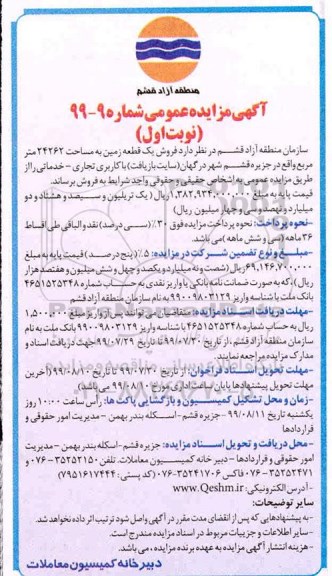 منطقه آزاد قشم
آگهی مزایده عمومی شماره ۹-۹۹
(نوبت اول)
سازمان منطقه آزاد قشم در نظر دارد فروش یک قطعه زمین به مساحت ۲۴۲۶۲ متر
مربع واقع در جزیره قشم شهر درگهان (سایت بازیافت) با کاربری تجاری - خدماتی را از
طریق مزایده عمومی به اشخاص حقیقی و حقوقی واجد شرایط به فروش برساند.
قیمت پایه به مبلغ ۱,۳۸۲,۹۳۴,۰۰۰,۰۰۰ ریال ( یک تریلیون و سیصد و هشتاد و دو
میلیارد و نهصد و سی و چهار میلیون ریال)
-نحوه پرداخت: نحوه پرداخت مزایده فوق ۳۰٪ (سی درصد) نقد و الباقی طی اقساط
۳۶ ماهه (سی و شش ماهه) می باشد.
-مبلغ و نوع تضمین شرکت در مزایده: ۵٪ (پنج درصد) قیمت پایه به مبلغ
۶۹,۱۴۶,۷۰۰,۰۰۰ ریال (شصت و نه میلیارد و یکصد و چهل و شش میلیون و هفتصد هزار
ریال)، که به صورت ضمانت نامه بانکی یا واریز نقدی به حساب شماره ۴۶۵۱۵۲۵۳۴۸
بانک ملت با شناسه واریز ۹۹۰۰۹۸۰۳۱۲۹ به نام سازمان منطقه آزاد قشم
-مهلت دریافت اسناد مزایده: متقاضیان می توانند پس از واریز مبلغ ۱,۵۰۰,۰۰۰
ریال به حساب شماره ۴۶۵۱۵۲۵۳۴۸ با شناسه واریز ۹۹۰۰۹۸۰۳۱۲۹ بانک ملت به نام
سازمان منطقه آزاد قشم، از تاریخ ۹۹/۰۷/۲۰ تا تاریخ ۹۹/۰۷/۲۹ جهت دریافت اسناد و
مدارک مزایده مراجعه نمایند.
-مهلت تحویل اسناد فراخوان : از تاریخ ۹۹/۰۷/۳۰ تا تاریخ ۹۹/۰۸/۱۰ (آخرین
مهلت تحویل پیشنهادها پایان ساعت اداری مورخ ۹۹/۰۸/۱۰ می باشد)
-زمان و محل تشکیل کمیسیون و بازگشایی پاکت ها: رأس ساعت ۱۰:۰۰ روز
یکشنبه تاریخ ۹۹/۰۸/۱۱ - جزیره قشم - اسکله بندر بهمن - مدیریت امور حقوقی و
قراردادها
-محل دریافت و تحویل اسناد مزایده: جزیره قشم- اسکله بندر بهمن - مدیریت
امور حقوقی و قراردادها - دبیرخانه کمیسیون معاملات. تلفن ۳۵۲۵۲۱۵۰-۰۷۶ و
۳۵۲۵۲۴۷۱-۰۷۶ فاکس ۳۵۲۴۱۷۰۶-۰۷۶ (کد پستی: ۷۹۵۱۶۱۷۴۴۴)
-آدرس الکترونیکی: www.Qeshm.ir
سایر توضیحات:
-به پیشنهادهایی که پس از انقضای مدت مقرر در آگهی واصل شود ترتیب اثر داده نخواهد شد.
-سایر اطلاعات و جزییات مربوط در اسناد مزایده مندرج است.
-هزینه انتشار آگهی مزایده به عهده برنده مزایده، می باشد.
دبیرخانه کمیسیون معاملات